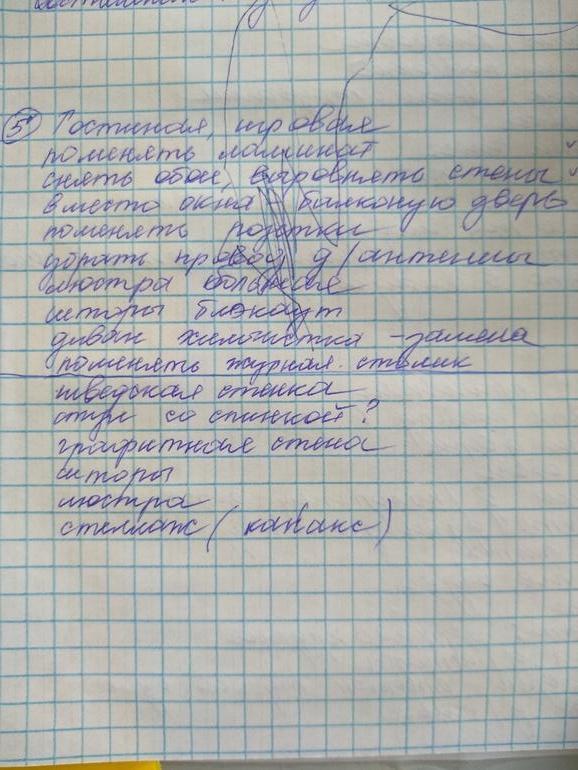 5) Гостиная, игровая
поменять ламинат
снять обои, выровнять стены
вместо окна - балконую дверь
поменять розетки
убрать провод д/антенны
люстра большая
шторы блэкаут
диван химчистка - замена
поменять журнал. столик
шведская стенка
стул со спинкой?
графитная стена
шторы
люстра
стеллаж (канапс)